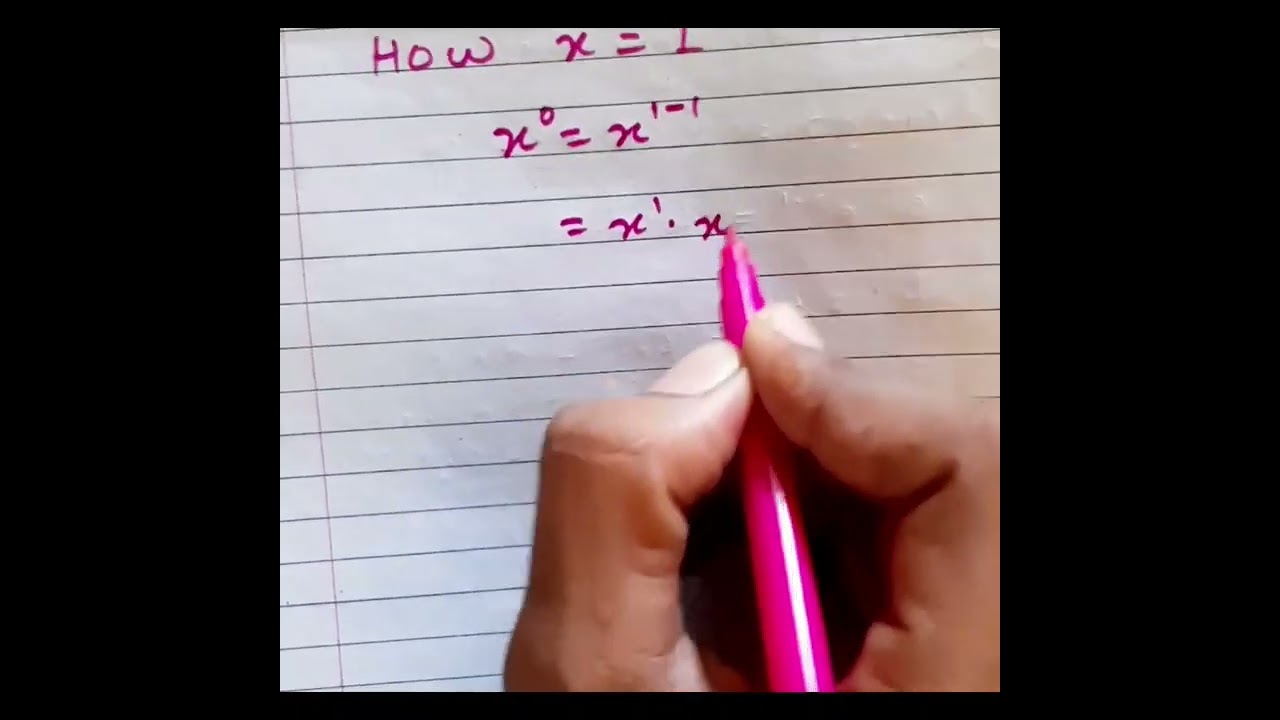 How x = 1
x⁰ = x¹⁻¹
= x¹ · x